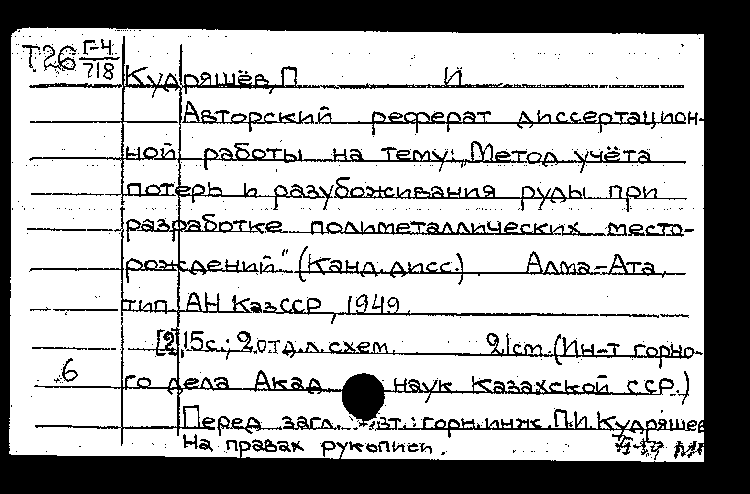 Т26 Г-4
718
Кудряшёв, П И
Авторский реферат диссертацион-
ной работы на тему: „Метод учёта
потерь и разубоживания руды при
разработке полиметаллических место-
рождений" (Канд. дисс.) Алма-Ата,
тип. АН КазССР, 1949.
[2], 15с.; 2 отд. л. схем. 21cm. (Ин-т горно-
6 го дела Акад. наук Казахской ССР.)
Перед загл. авт.: горн. инж. П.И. Кудряшев
На правах рукописи.